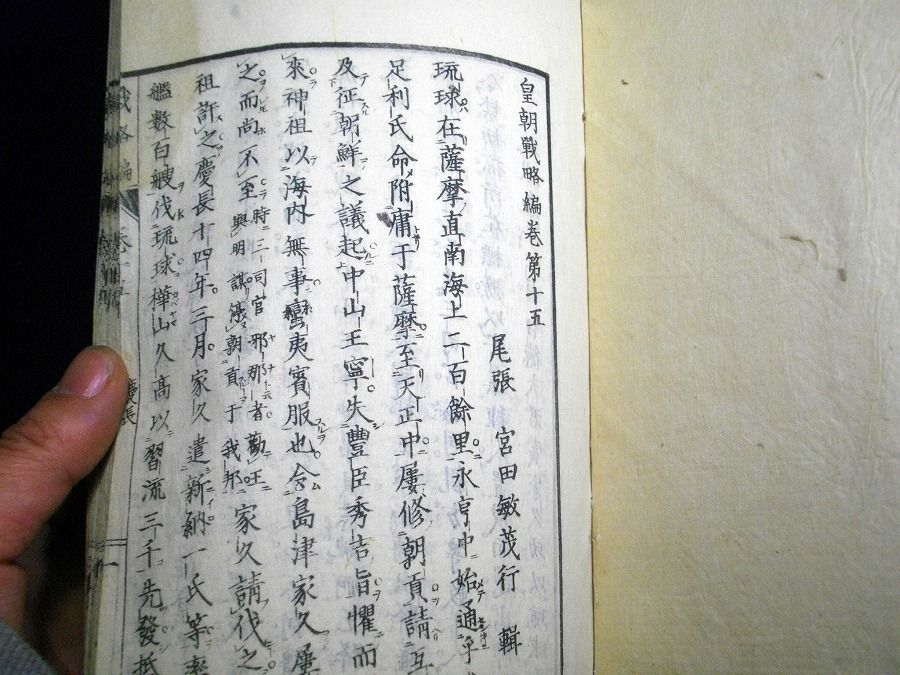 皇朝戰略編卷第十五
尾張 宮田敏茂行 輯
琉球在薩摩直南海上二百餘里永亨中始通
足利氏命附庸于薩摩至天正中屢修朝貢請互
及征朝鮮之議起中山王寧失豐臣秀吉旨懼而
來神祖以海內無事蠻夷賓服也令島津家久屢
之而尚不至時三司官邪那者勸王
與明謀朝貢于我邦家久請伐之
祖許之慶長十四年三月家久遣新納一氏等率
艦數百艘伐琉球樺山久高以習流三千先發抵
戰略編
慶長